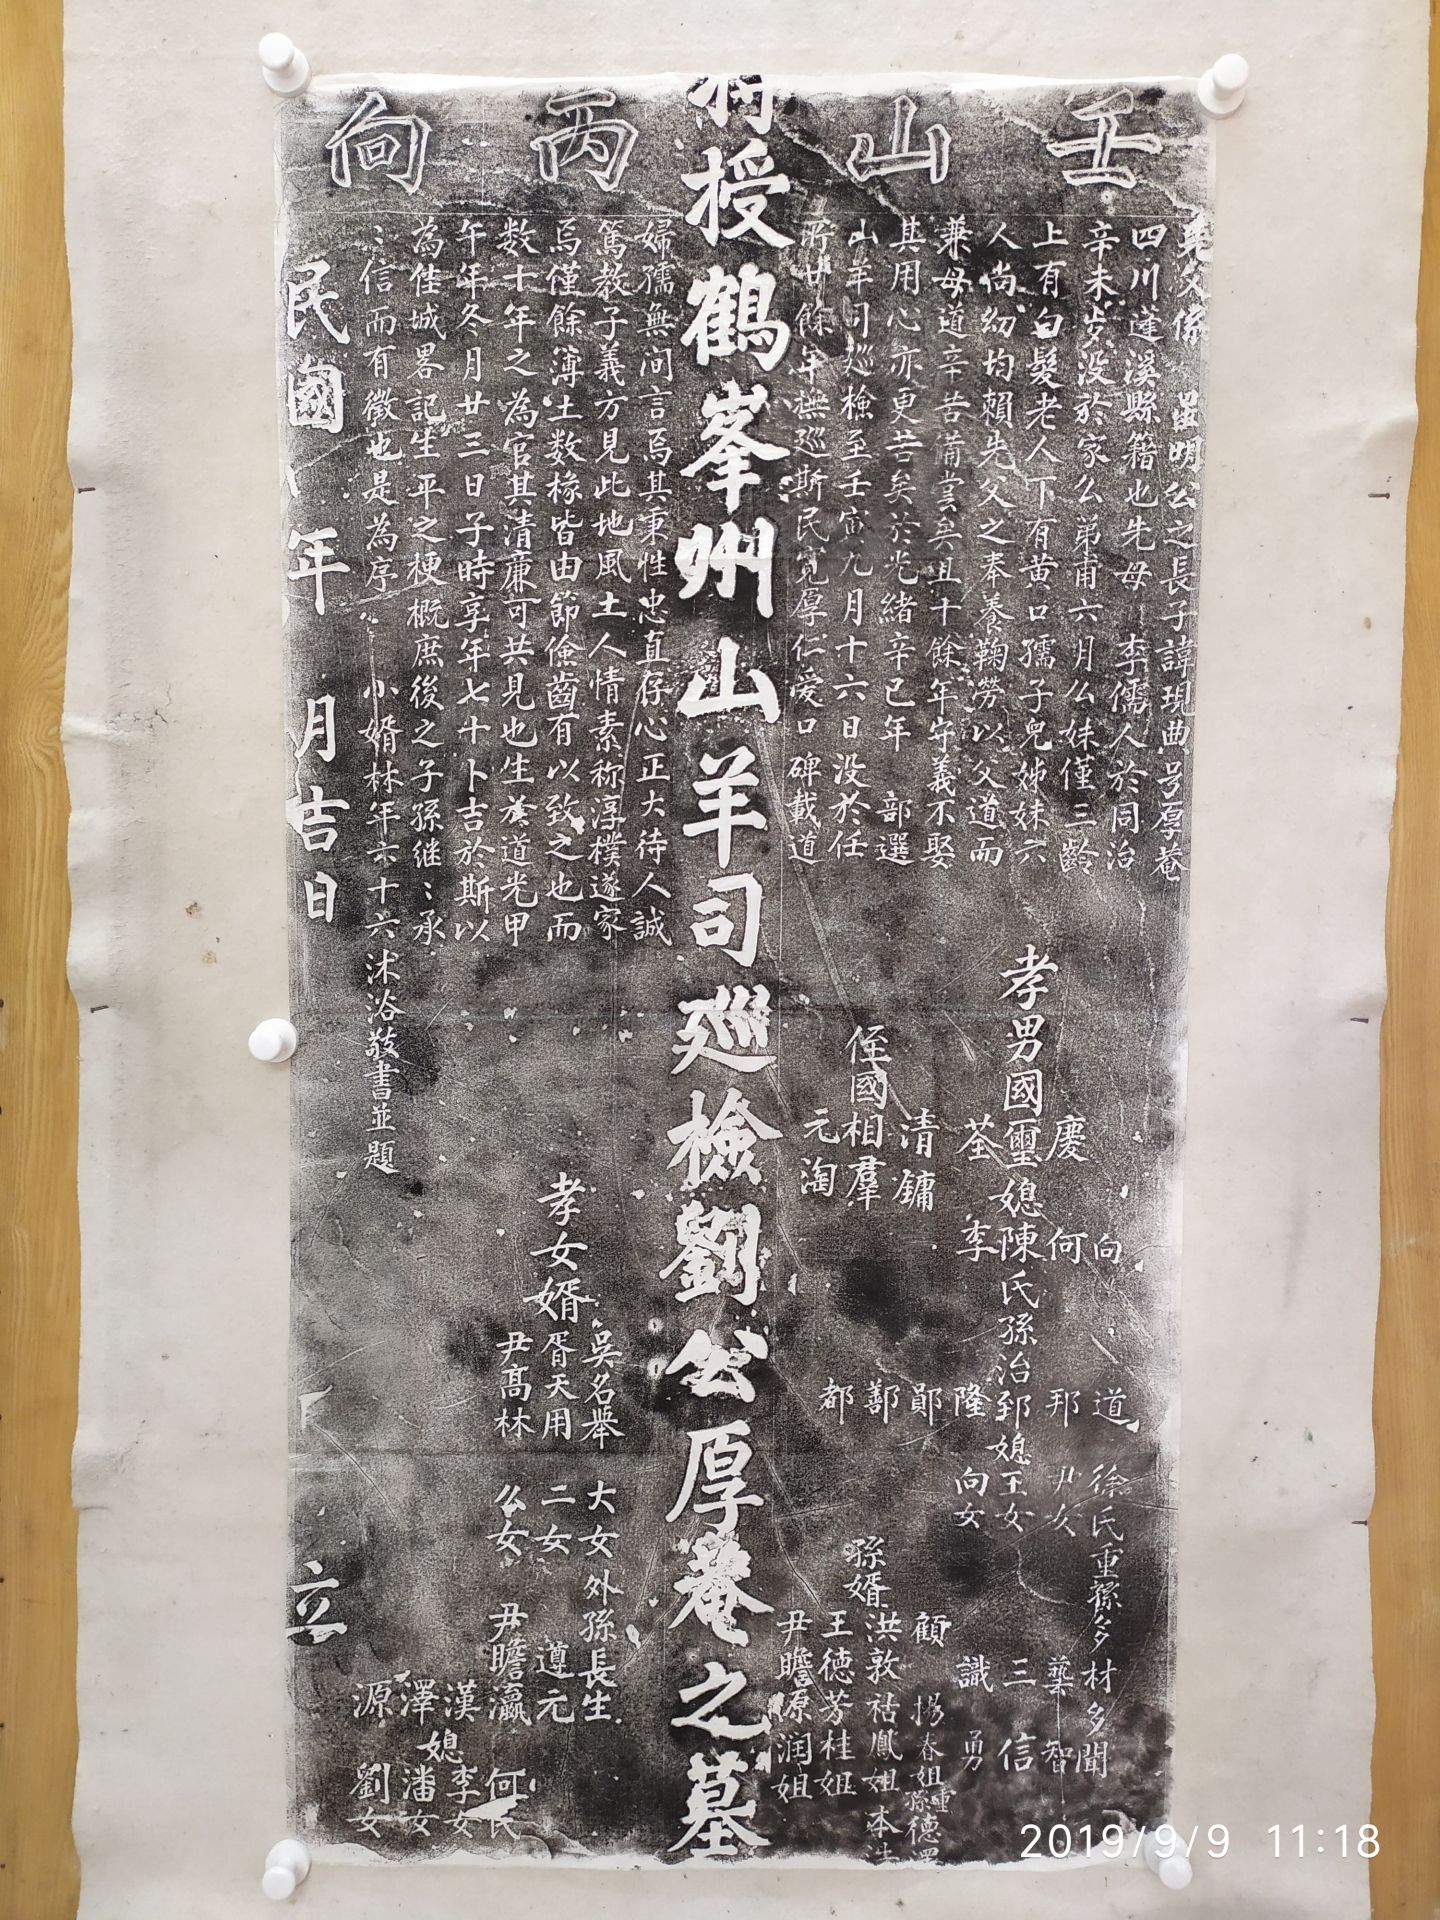 壬山丙向
父係 星明公之長子諱現曲号厚菴
四川蓬溪縣籍也先母 李儒人於同治
辛未步没於家么弟甫六月么妹僅三齡
上有白髮老人下有黄口孺子兒姊妹六
人尚幼均賴先父之奉養鞠勞以父道而
兼母道辛苦備嘗矣且十餘年守義不娶
其用心亦更苦矣於光緒辛已年 部選
山羊司巡檢至壬寅九月十六日没於任
所廿餘年撫巡斯民寬厚仁爱口碑載道
授鶴峯州山羊司巡檢劉公厚菴之墓
婦孺無间言焉其秉性忠直存心正大待人誠
篤教子義方見此地風土人情素称淳樸遂家
焉僅餘薄土数椽皆由節儉齒有以致之也而
数十年之為官其清廉可共見也生於道光甲
午年冬月廿三日子時享年七十卜吉於斯以
為佳城畧記生平之梗概庶後之子孫继〻承
〻信而有徵也是為序 小婿林年六十六沐浴敬書並題
孝男國
慶
璽
荃
媳
何
陳氏
李
向
孫治
道
邦
郅
隆
鄖
鄯
都
媳
徐氏
尹女
王女
向女
重孫多材多聞
藝智
三信
識勇
侄國相
清鏞
羣
元淘
孫婿
顧
洪敦祜鳳姐
王德芳桂姐
尹瞻原润姐
楊春姐
重孫德澤
本
孝女婿
吳名舉 大女
胥天用 二女
尹高林 么女
外孫長生
遵元
尹瞻瀛
漢
澤
源
媳
何氏
李女
潘女
劉女
民國 年 月吉日 立
2019/9/9 11:18